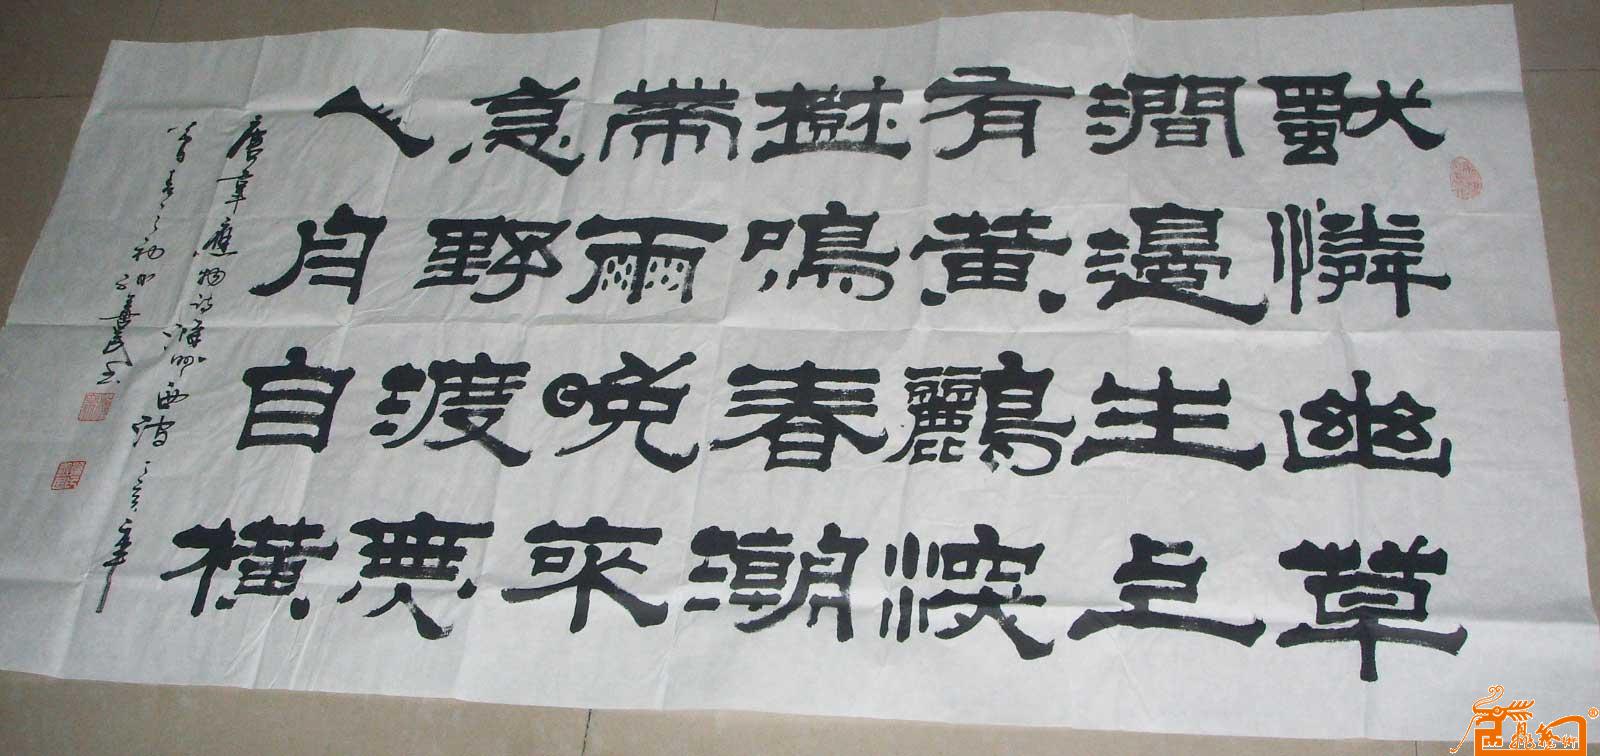 獨憐幽草
澗邊生上
有黄鸝深
樹鳴春潮
帶雨晚來
急野渡無
人舟自橫
唐韋應物詩滁州西澗